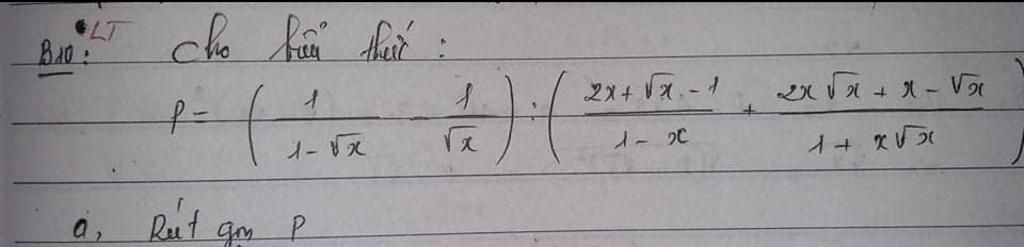 LT
B10: Cho biểu thức :
P = ( 1/(1-√x) - 1/√x ) : ( (2x+√x-1)/(1-x) + (2x√x+x-√x)/(1+x√x) )
a, Rút gọn P